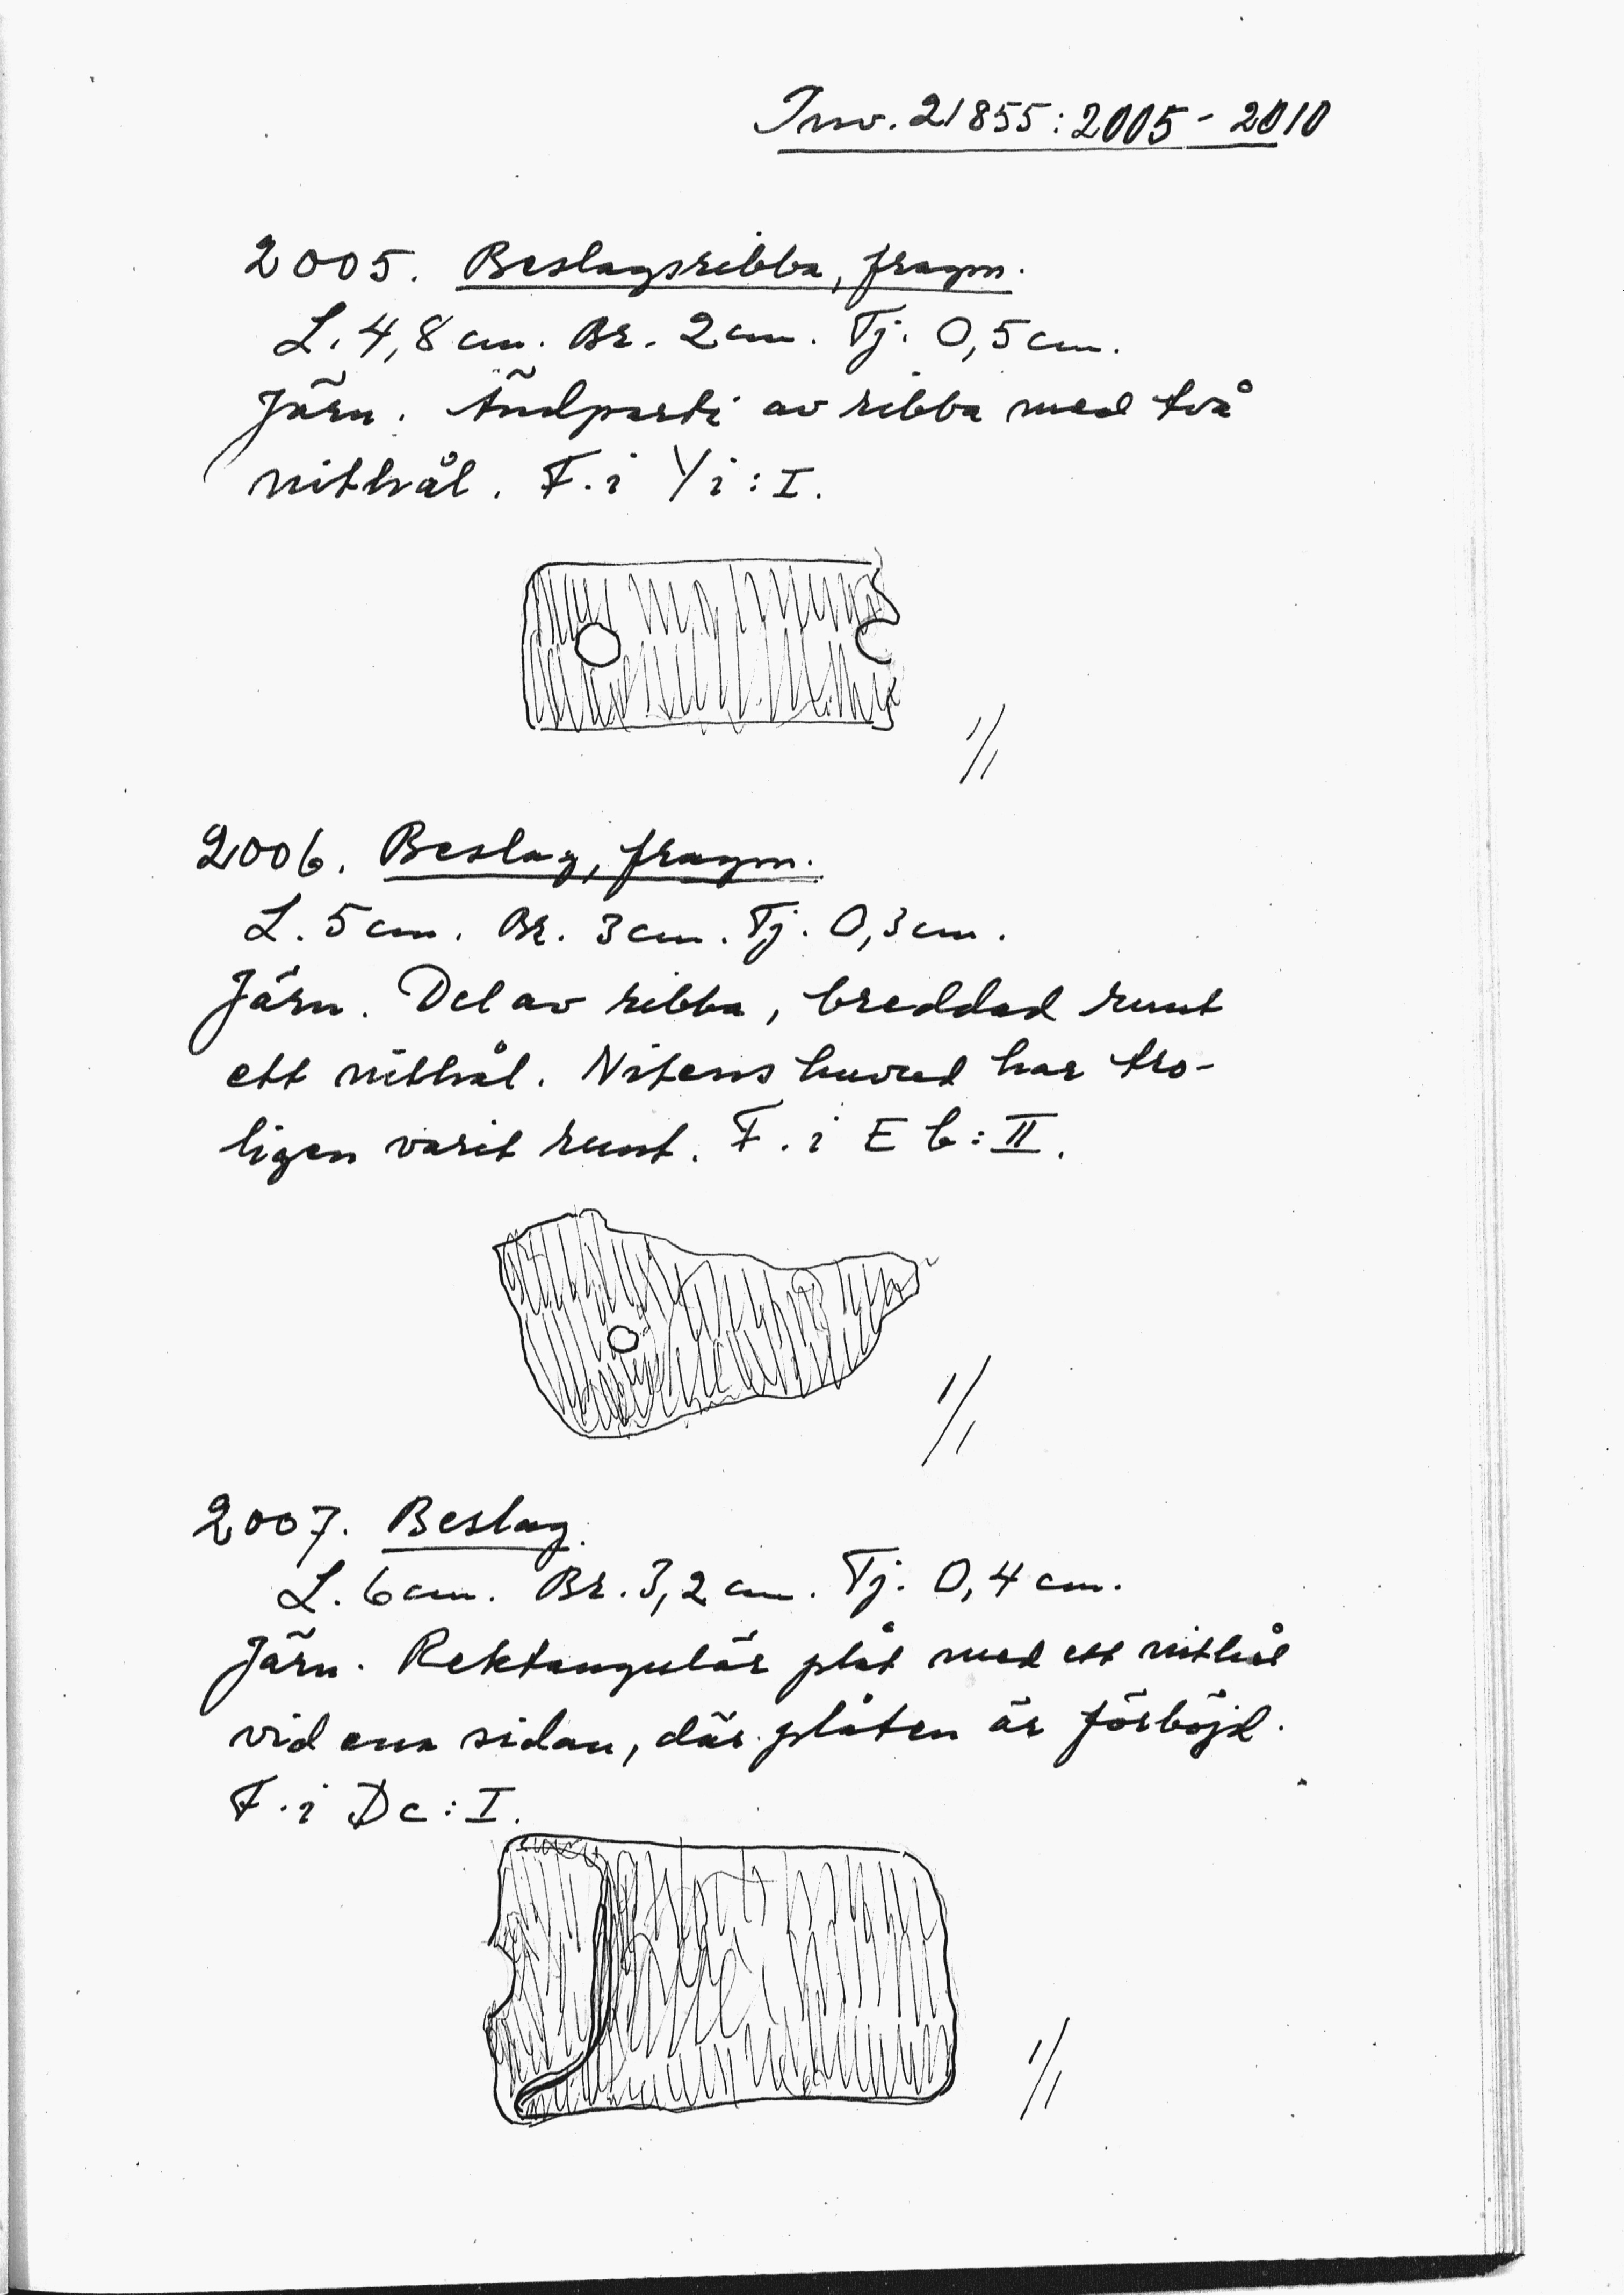 Inv. 21855:2005 - 2010
2005. Beslagsribba, fragm.
L. 4,8 cm. Br. 2 cm. Tj. 0,5 cm.
Järn. Ändparti av ribba med två
nithål. F. i Yi:I.
1/1
2006. Beslag, fragm.
L. 5 cm. Br. 3 cm. Tj. 0,3 cm.
Järn. Del av ribba, breddad runt
ett nithål. Nitens huvud har tro-
ligen varit runt. F. i Eb:II.
1/1
2007. Beslag.
L. 6 cm. Br. 3,2 cm. Tj. 0,4 cm.
Järn. Rektangulär plåt med ett nithål
vid ena sidan, där plåten är förböjd.
F. i Dc:I.
1/1